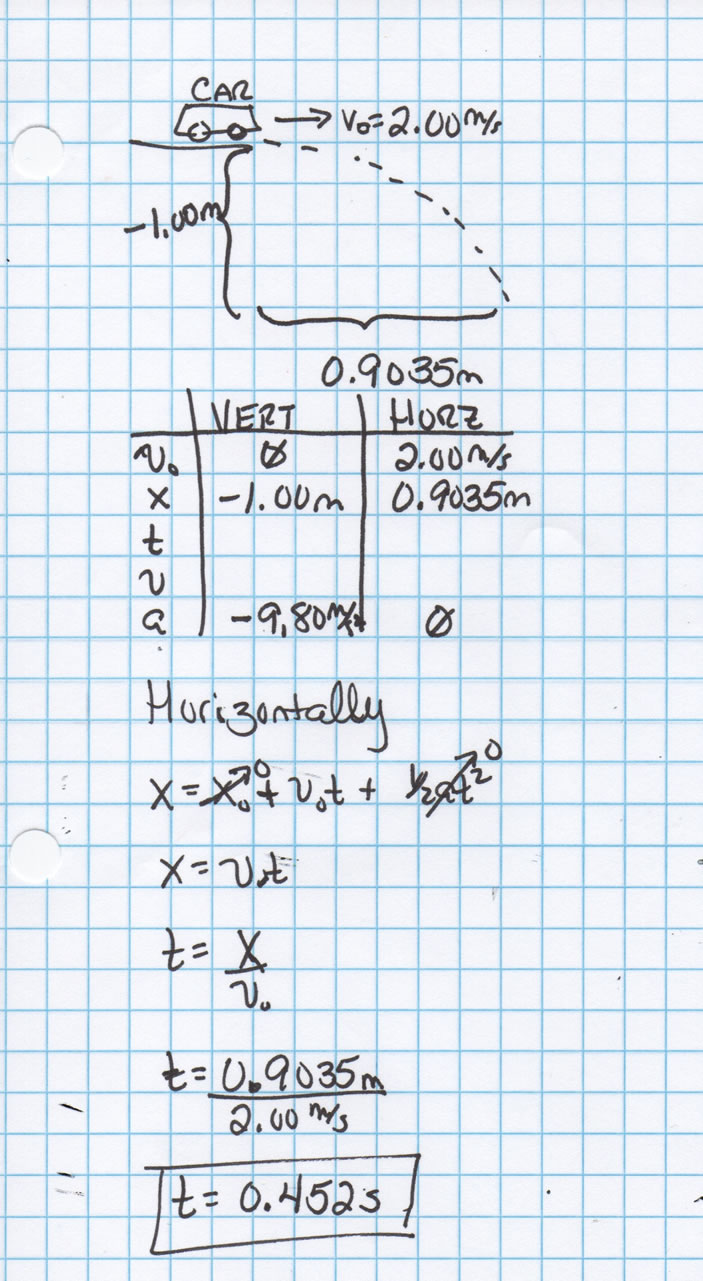 CAR
→ v₀ = 2.00 m/s
-1.00m
0.9035m
VERT HORZ
v₀ Ø 2.00 m/s
x -1.00m 0.9035m
t
v
a -9.80 m/s² Ø
Horizontally
x = x₀↗0 + v₀t + ½at²↗0
x = v₀t
t = x/v₀
t = 0.9035m / 2.00 m/s
t = 0.452s